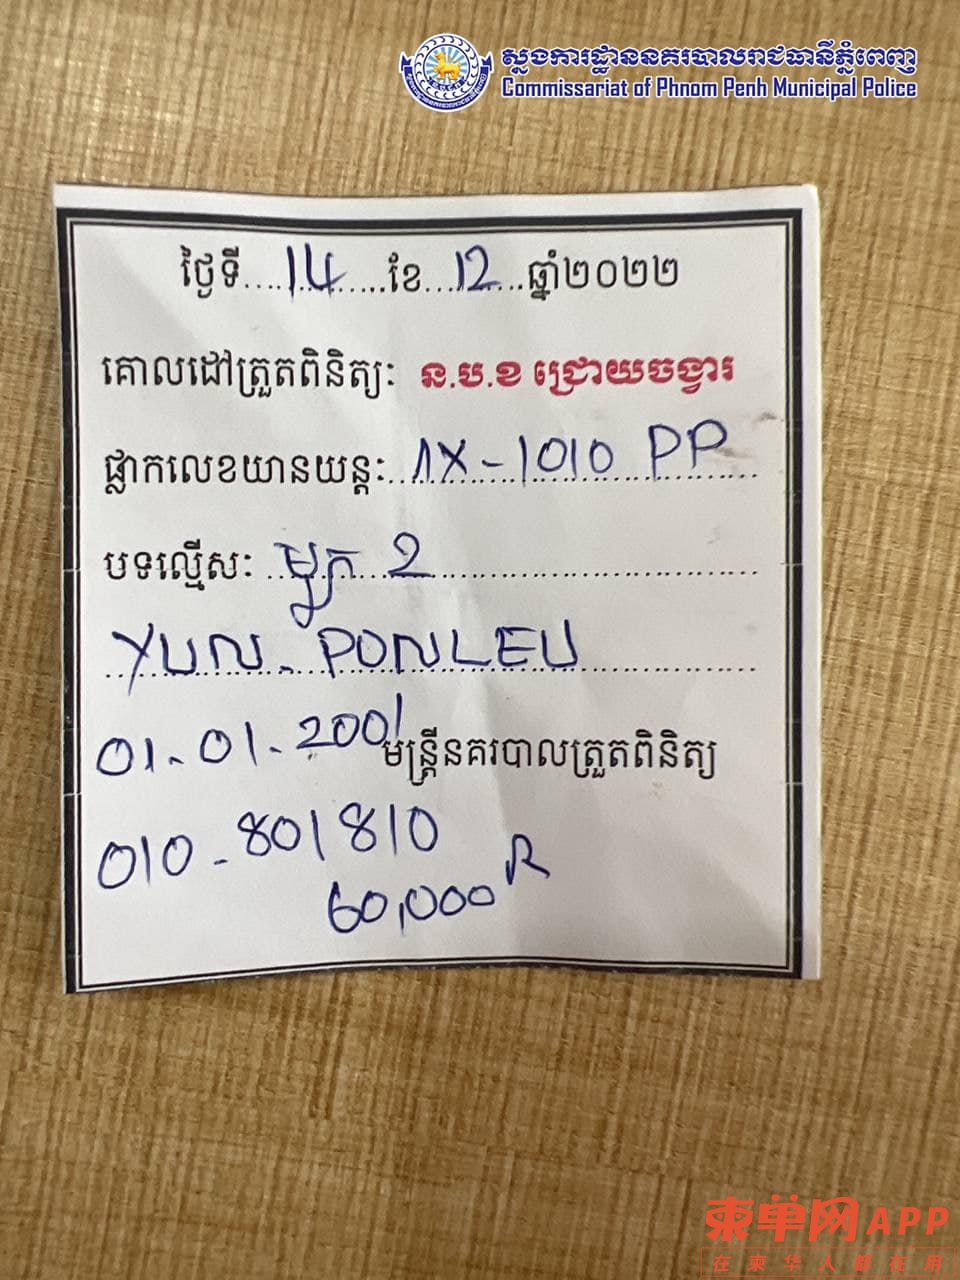 ស្នងការដ្ឋាននគរបាលរាជធានីភ្នំពេញ
Commissariat of Phnom Penh Municipal Police
ថ្ងៃទី....14....ខែ....12....ឆ្នាំ២០២២
គោលដៅត្រួតពិនិត្យ: ន.ប.ខ ជ្រោយចង្វារ
ផ្លាកលេខយានយន្ត: 1X-1010 PP
បទល្មើស: មួក 2
YUN. PONLEU
01.01.2001
មន្ត្រីនគរបាលត្រួតពិនិត្យ
010-801810
60,000 R
柬单网APP
在柬华人都在用